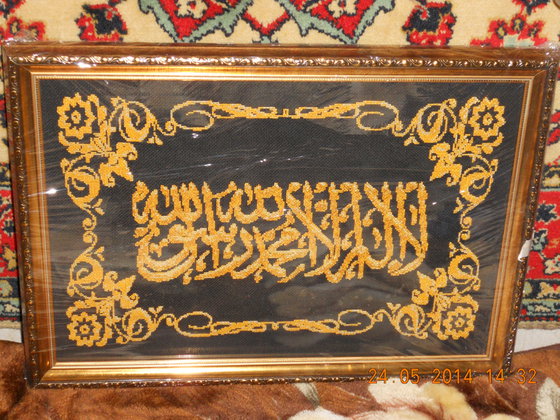 لا إله إلا الله محمد رسول الله
24.05.2014 14:32